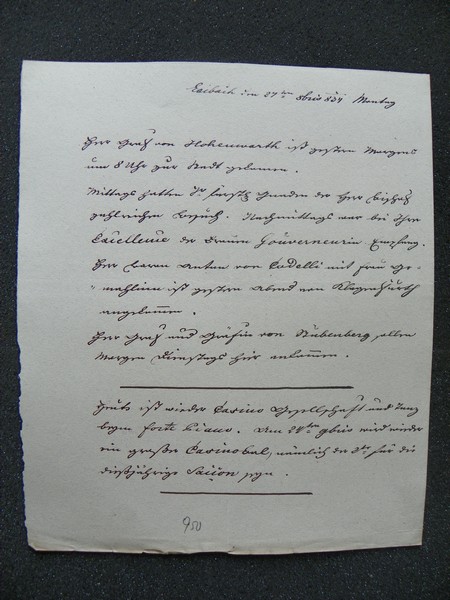 Laibach den 27ten 8bris 834 Montag
Herr Graf von Hohenwarth ist gestern Morgens
um 8 Uhr zur Stadt gekommen.
Mittags hatten Sr fürstl. Gnaden der Herr Bischof
zahlreichen Besuch. Nachmittags war bei Ihre
Excellence der Frauen Gouverneurin Empfang.
Herr Baron Anton von Codelli mit Frau Ge-
mahlinn ist gestern Abend von Klagenfurth
angekommen.
Herr Graf und Gräfin von Stubenberg sollen
Morgen Dienstags hier ankommen.
Heute ist wieder Casino Gesellschaft und Tanz
beym forte piano. Am 24ten 9bris wird wieder
ein großer Casinobal, nämlich der 2te für die
dießjährige Saison seyn.
950